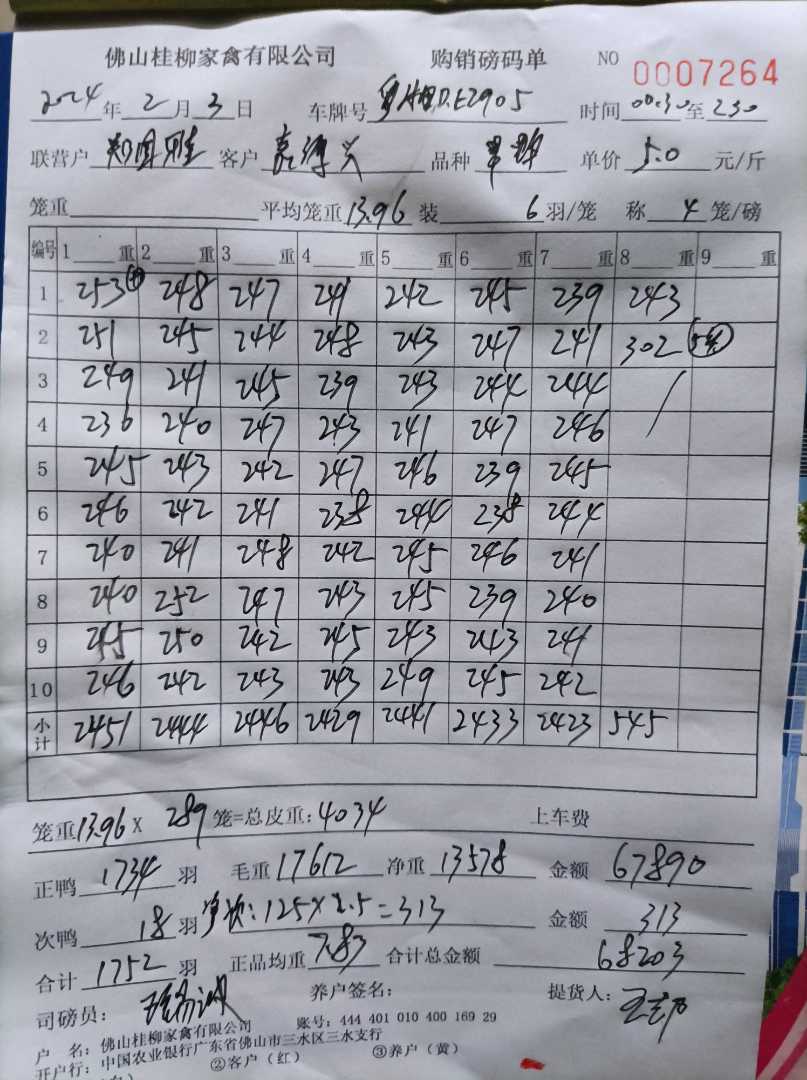 佛山桂柳家禽有限公司 购销磅码单 NO 0007264
2024年2月3日 车牌号 E2905 时间00:30至230
联营户 客户 品种 单价5.0元/斤
笼重 平均笼重13.96 装6羽/笼 称4笼/磅
编号 1 重 2 重 3 重 4 重 5 重 6 重 7 重 8 重 9 重
1 253 248 247 241 242 245 239 243
2 251 245 244 248 243 247 241 302
3 249 241 245 239 243 244 244
4 236 240 247 243 241 247 246
5 245 243 242 247 246 239 245
6 246 242 241 238 244 238 244
7 240 241 248 242 245 246 241
8 240 252 247 243 245 239 240
9 245 250 242 245 243 243 241
10 246 242 243 243 249 245 242
小计 2451 2444 2446 2429 2441 2433 2423 545
笼重13.96×289笼=总皮重:4034 上车费
正鸭1734羽 毛重17612 净重13578 金额67890
次鸭18羽 净次:125×2.5=313 金额313
合计1752羽 正品均重7.83 合计总金额68203
司磅员: 养户签名: 提货人:
户 名:佛山桂柳家禽有限公司 账号:444 401 010 400 169 29
开户行:中国农业银行广东省佛山市三水区三水支行
②客户(红) ③养户(黄)